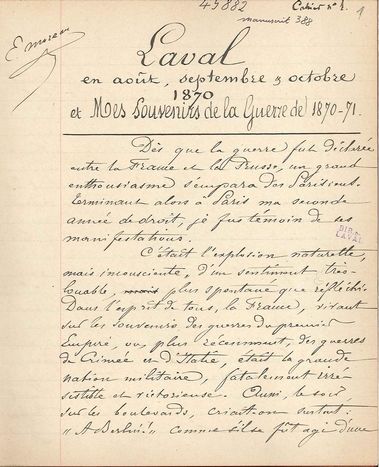 45882
Cahier nº 1.
1
manuscrit 388
E. Moreau
Laval
en août, septembre & octobre
1870
et Mes Souvenirs de la Guerre de 1870-71.
Dès que la guerre fut déclarée
entre la France et la Prusse, un grand
enthousiasme s'empara des Parisiens.
Terminant alors à Paris ma seconde
année de droit, je fus témoin de ces
manifestations.
BIB. 
LAVAL
C'était l'explosion naturelle,
mais inconsciente, d'un sentiment très-
louable, plus spontané que réfléchi.
Dans l'esprit de tous, la France, vivant
sur les souvenirs des guerres du premier
Empire, ou, plus récemment, des guerres
de Crimée et d'Italie, était la grande
nation militaire, fatalement irré
sistible et victorieuse. Aussi, le soir,
sur les boulevards, criait-on surtout :
"A Berlin !" comme s'il se fût agi d'une